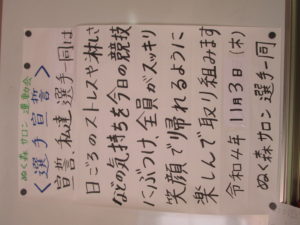 ぬく森サロン 運動会
〈選手宣誓〉
宣誓、私達選手一同は
日ごろのストレスや淋しさ
などの気持ちを今日の競技
にぶつけ全員がスッキリ
笑顔で帰れるように
楽しんで取り組みます
令和4年11月3日(木)
ぬく森サロン選手一同